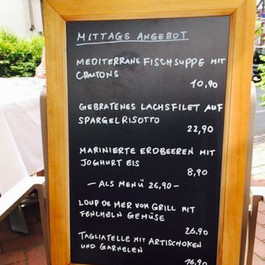 MITTAGS ANGEBOT
MEDITERRANE FISCHSUPPE MIT
CROUTONS
10,90
GEBRATENES LACHSFILET AUF
SPARGELRISOTTO
22,90
MARINIERTE ERDBEEREN MIT
JOGHURT EIS
8,90
— ALS MENÜ 26,90 —
LOUP DE MER VOM GRILL MIT
FENCHELN GEMÜSE
26.90
TAGLIATELLE MIT ARTISCHOKEN
UND GARNELEN
16.90